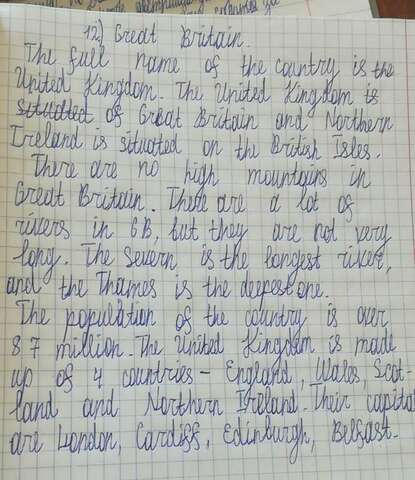 12) Great Britain.
The full name of the country is the
United Kingdom. The United Kingdom is
situated of Great Britain and Northern
Ireland is situated on the British Isles.
There are no high mountains in
Great Britain. There are a lot of
rivers in GB, but they are not very
long. The Severn is the longest river,
and the Thames is the deepest one.
The population of the country is over
87 million. The United Kingdom is made
up of 4 countries - England, Wales, Scot-
land and Northern Ireland. Their capital
are London, Cardiff, Edinburgh, Belfast.